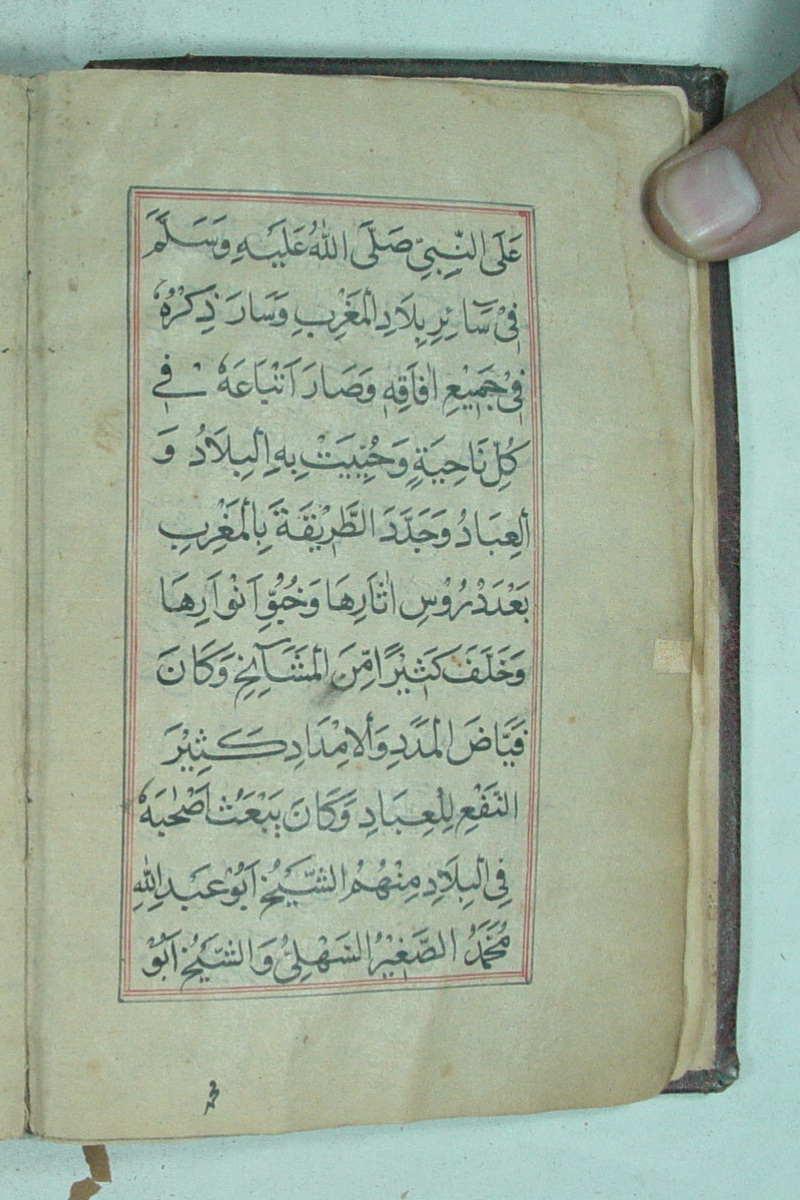 عَلَى النَّبِيِّ صَلَّى اللهُ عَلَيْهِ وَسَلَّمَ
فِىْ سَائِرِ بِلَادِ الْمَغْرِبِ وَسَارَ ذِكْرُهٗ
فِىْ جَمِيْعِ اٰفَاقِهٖ وَصَارَ اَتْبَاعَهٗ فِے
كُلِّ نَاحِيَةٍ وَحُبِّبَتْ بِهِ الْبِلَادُ وَ
الْعِبَادُ وَجَدَّدَ الطَّرِيْقَةَ بِالْمَغْرِبِ
بَعْدَ دُرُوْسِ اٰثَارِهَا وَخُبُوِّ اَنْوَارِهَا
وَخَلَّفَ كَثِيْرًا مِّنَ الْمَشَآئِخِ وَكَانَ
فَيَّاضَ الْمَدَدِ وَالْاِمْدَادِ كَثِيْرَ
النَّفْعِ لِلْعِبَادِ وَكَانَ يَبْعَثُ اَصْحٰبَهٗ
فِى الْبِلَادِ مِنْهُمُ الشَّيْخُ اَبُوْ عَبْدِ اللهِ
مُحَمَّدُ الصَّغِيْرُ السَّهْلِىُّ وَالشَّيْخُ اَبُوْ